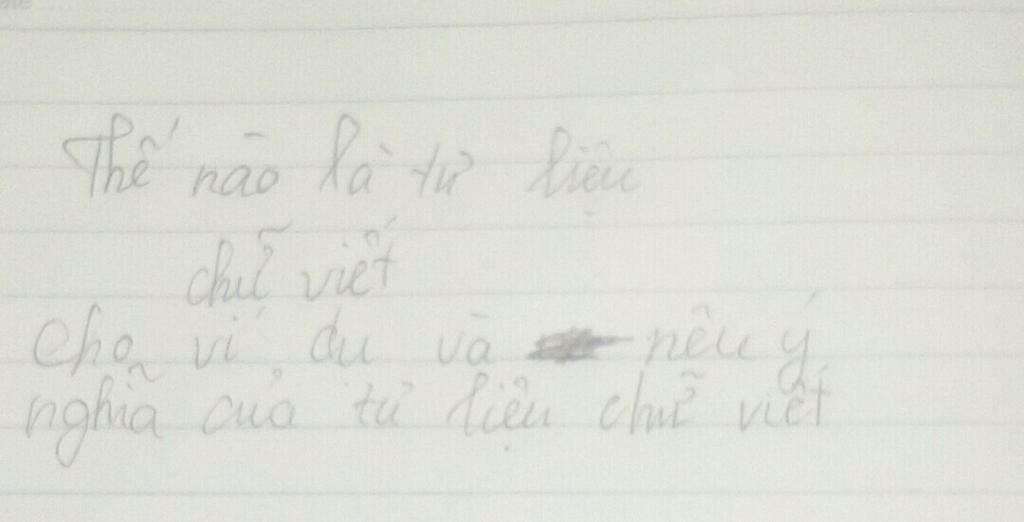 Thế nào là tư liệu
chữ viết
Cho ví dụ và nêu ý
nghĩa của tư liệu chữ viết